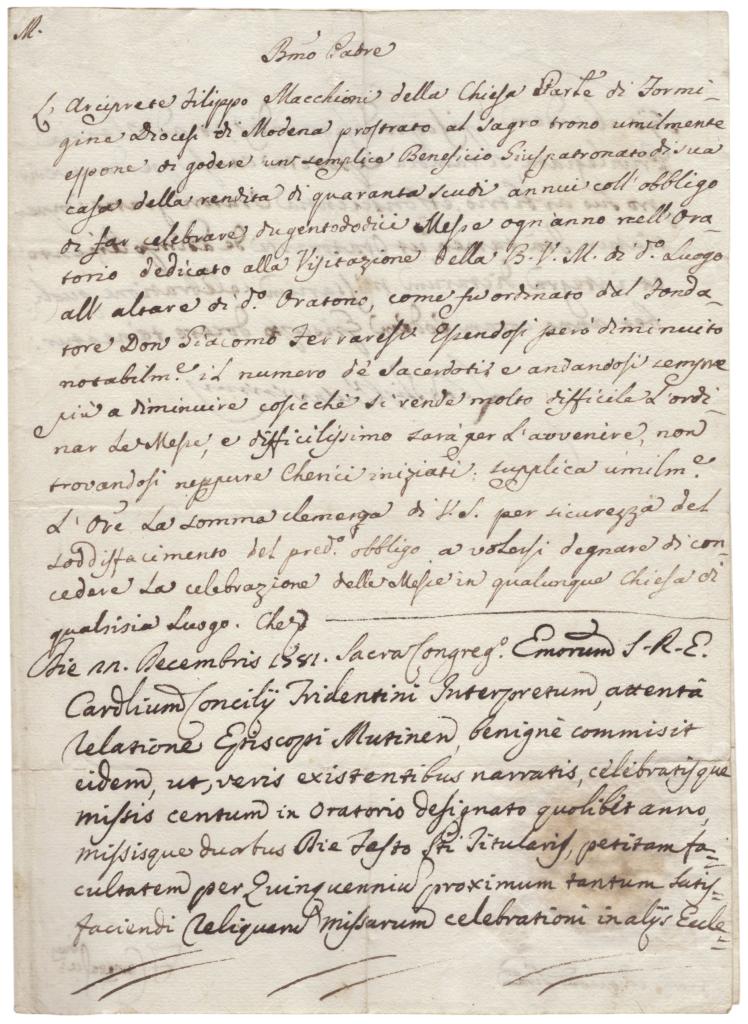 M.
Bmo Padre
L' Arciprete Filippo Macchioni della Chiesa Parle di Formi-
gine Diocesi di Modena prostrato al sagro trono umilmente
espone di godere un semplice Beneficio Giuspatronato di sua
casa della rendita di quaranta scudi annui coll' obbligo
di far celebrare dugentododici Messe ogn' anno nell' Ora-
torio dedicato alla Visitazione della B. V. M. di do. Luogo
all' altare di do. Oratorio, come fu ordinato dal Fonda-
tore Don Giacomo Ferraresi. Essendosi però diminuito
notabilme. il numero de' Sacerdoti, e andandosi sempre
più a diminuire cosicchè si rende molto difficile l' ordi-
nar le Messe, e difficilissimo sarà per l' avvenire, non
trovandosi neppure Cherici iniziati: supplica umilme.
L' Ore la somma clemenza di V. S. per sicurezza del
soddisfacimento del predo. obbligo a volersi degnare di con-
cedere la celebrazione delle Messe in qualunque Chiesa di
qualsisia Luogo. Che
Die 22. Decembris 1781. Sacra Congrego. Emorum S. R. E.
Cardlium Concilij Tridentini Interpretum, attentâ
relatione Episcopi Mutinen, benignè commisit
eidem, ut, veris existentibus narratis, celebratisque
missis centum in Oratorio designato quolibet anno,
missisque duabus Die Festo Sti Titularis, petitam fa=
cultatem per Quinquenniu proximum tantum satis=
faciendi reliquaru missarum celebrationi in alijs Eccle=